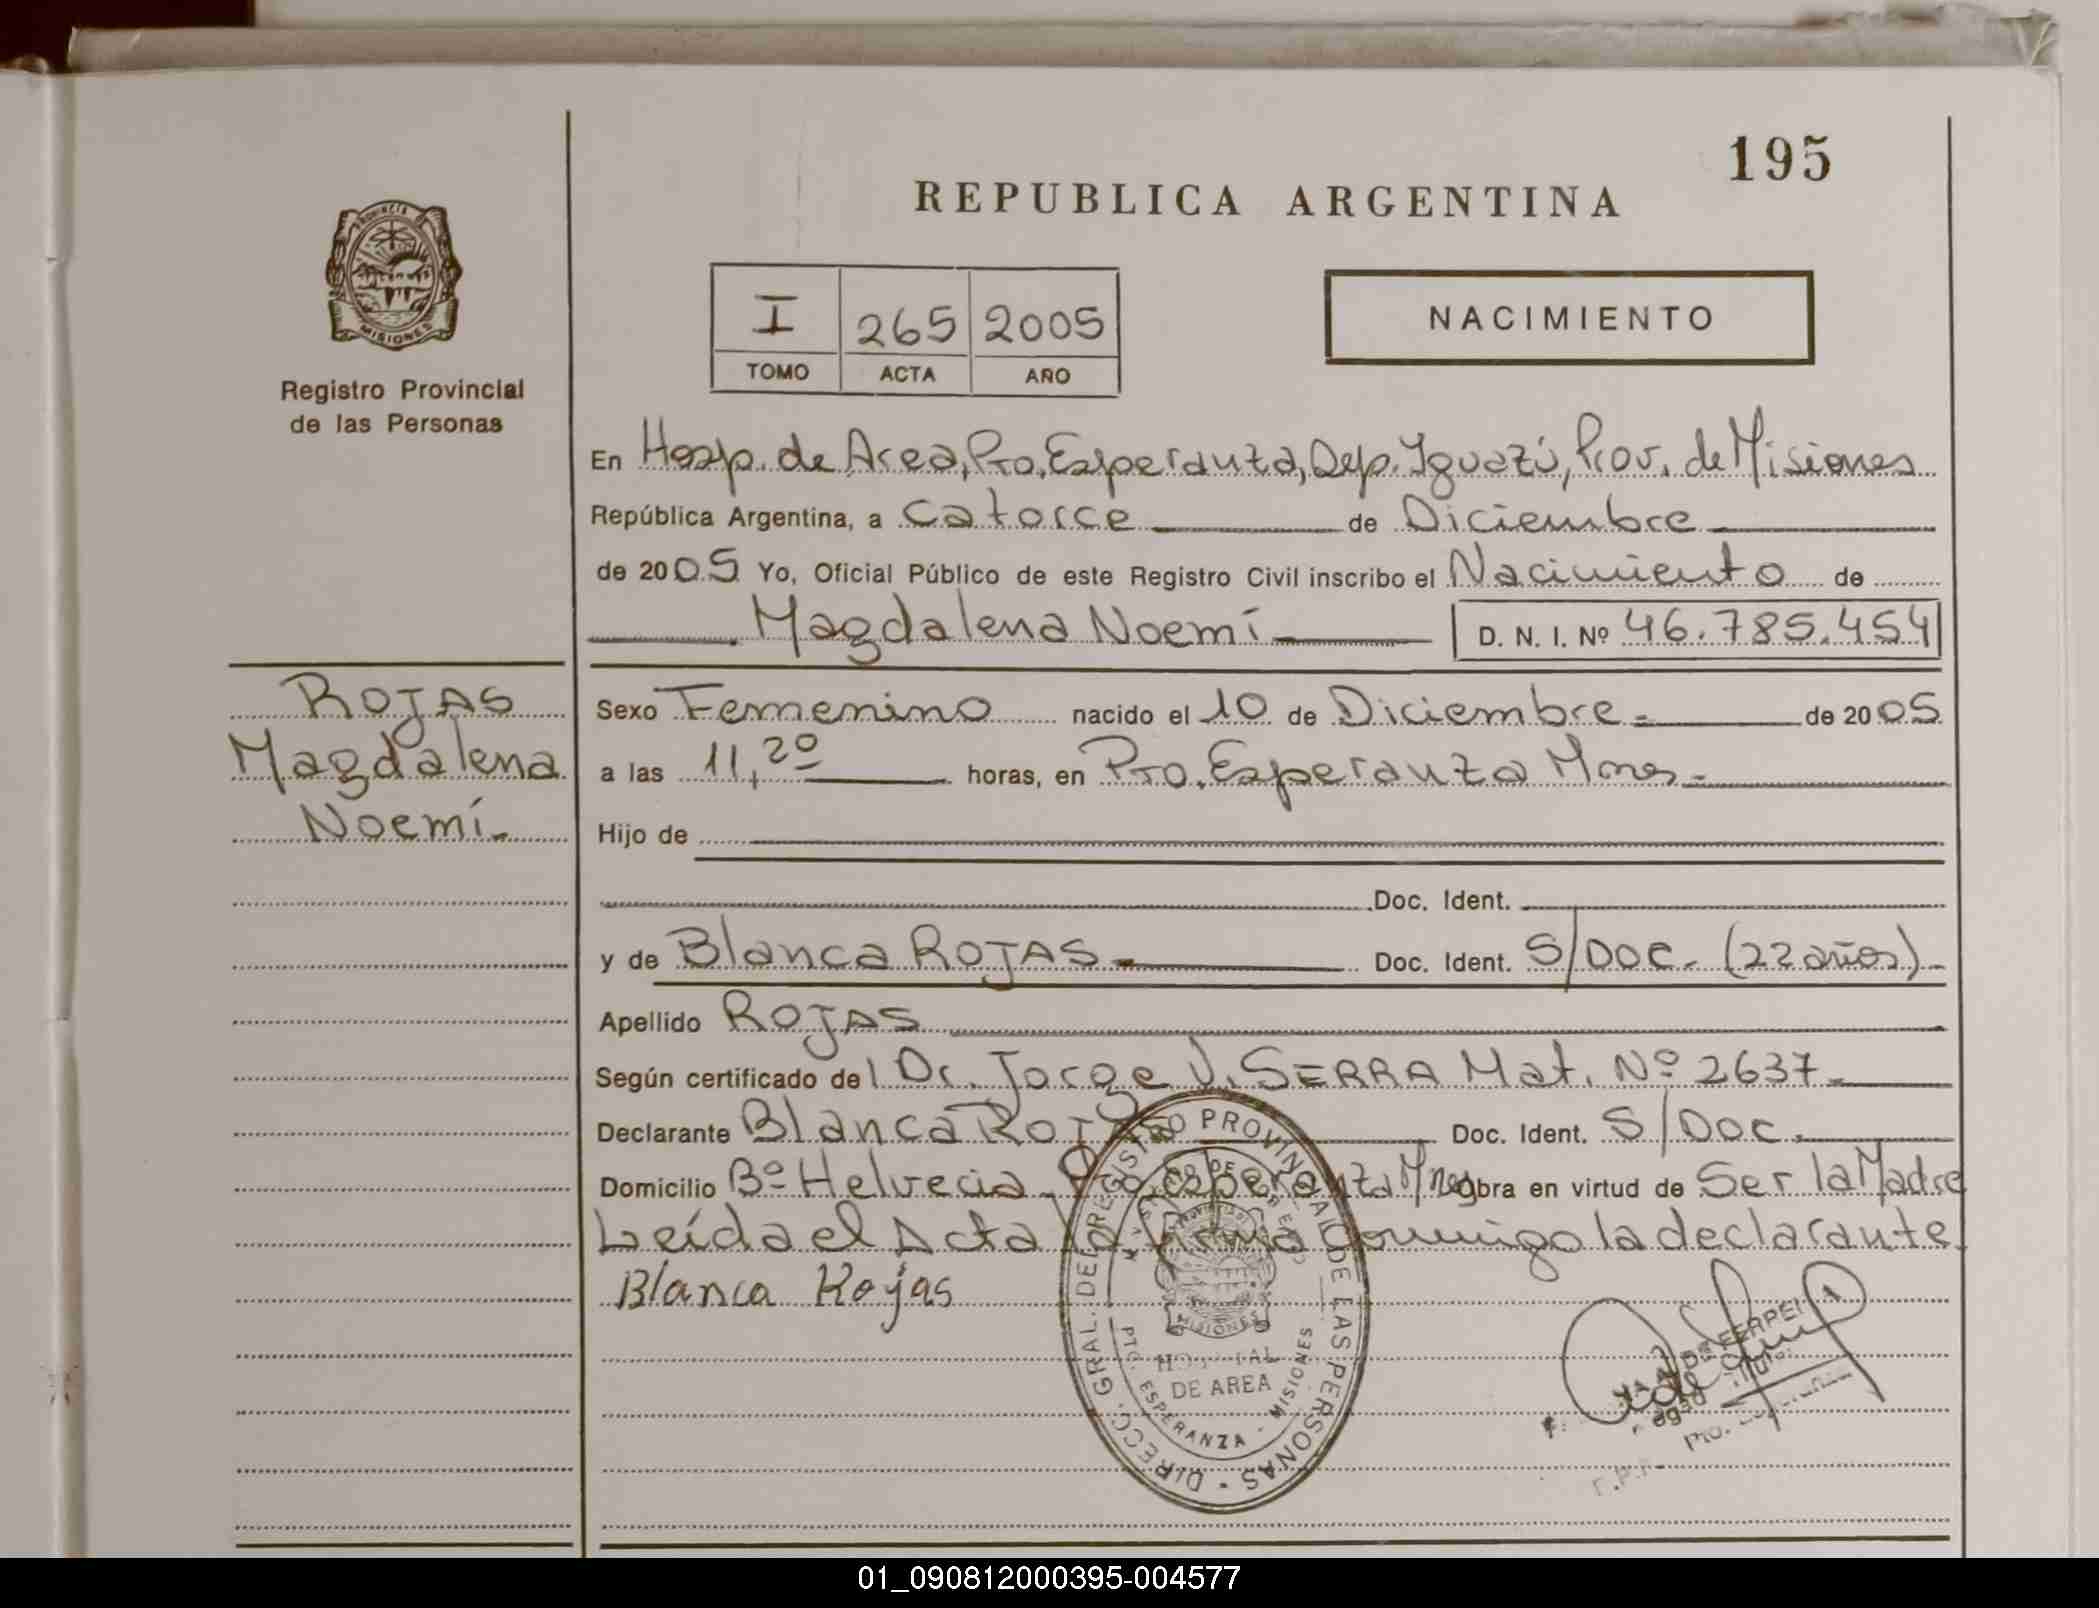 195
REPUBLICA ARGENTINA
PROVINCIA DE
MISIONES
Registro Provincial
de las Personas
I 265 2005
TOMO ACTA AÑO
NACIMIENTO
En Hosp. de Area, Pto. Esperanza, Dep. Iguazú, Prov. de Misiones
República Argentina, a catorce de Diciembre
de 2005 Yo, Oficial Público de este Registro Civil inscribo el Nacimiento de
Magdalena Noemí D. N. I. Nº 46.785.454
ROJAS
Magdalena
Noemí.
Sexo Femenino nacido el 10 de Diciembre de 2005
a las 11,20 horas, en Pto. Esperanza Mnes.
Hijo de
Doc. Ident.
y de Blanca ROJAS Doc. Ident. S/DOC. (22 años)
Apellido ROJAS
Según certificado del Dr. Jorge V. SERRA Mat. Nº 2637
Declarante Blanca ROJAS Doc. Ident. S/DOC.
Domicilio Bº Helvecia Pto. Esperanza Mnes obra en virtud de Ser la Madre
Leída el Acta la firma conmigo la declarante.
Blanca Rojas
DIRECC. GRAL. DEL REGISTRO PROVINCIAL DE LAS PERSONAS
MISIONES
HOSPITAL
DE AREA
PTO. ESPERANZA - MISIONES
01_090812000395-004577